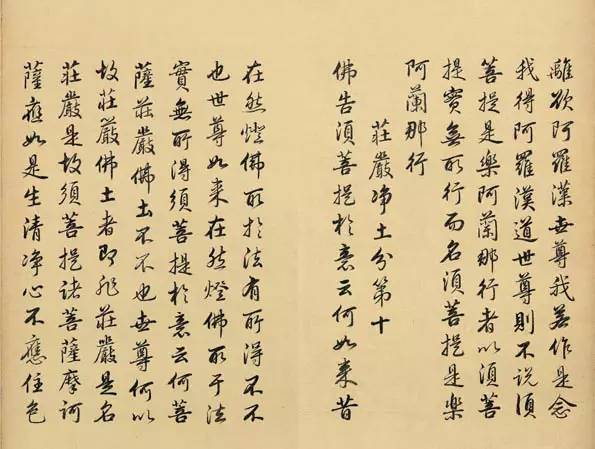 離欲阿羅漢世尊我若作是念
我得阿羅漢道世尊則不說須
菩提是樂阿蘭那行者以須菩
提實無所行而名須菩提是樂
阿蘭那行
莊嚴净土分第十
佛告須菩提於意云何如來昔
在然燈佛所於法有所得不不
也世尊如來在然燈佛所于法
實無所得須菩提於意云何菩
薩莊嚴佛土不不也世尊何以
故莊嚴佛土者即非莊嚴是名
莊嚴是故須菩提諸菩薩摩訶
薩應如是生清净心不應住色